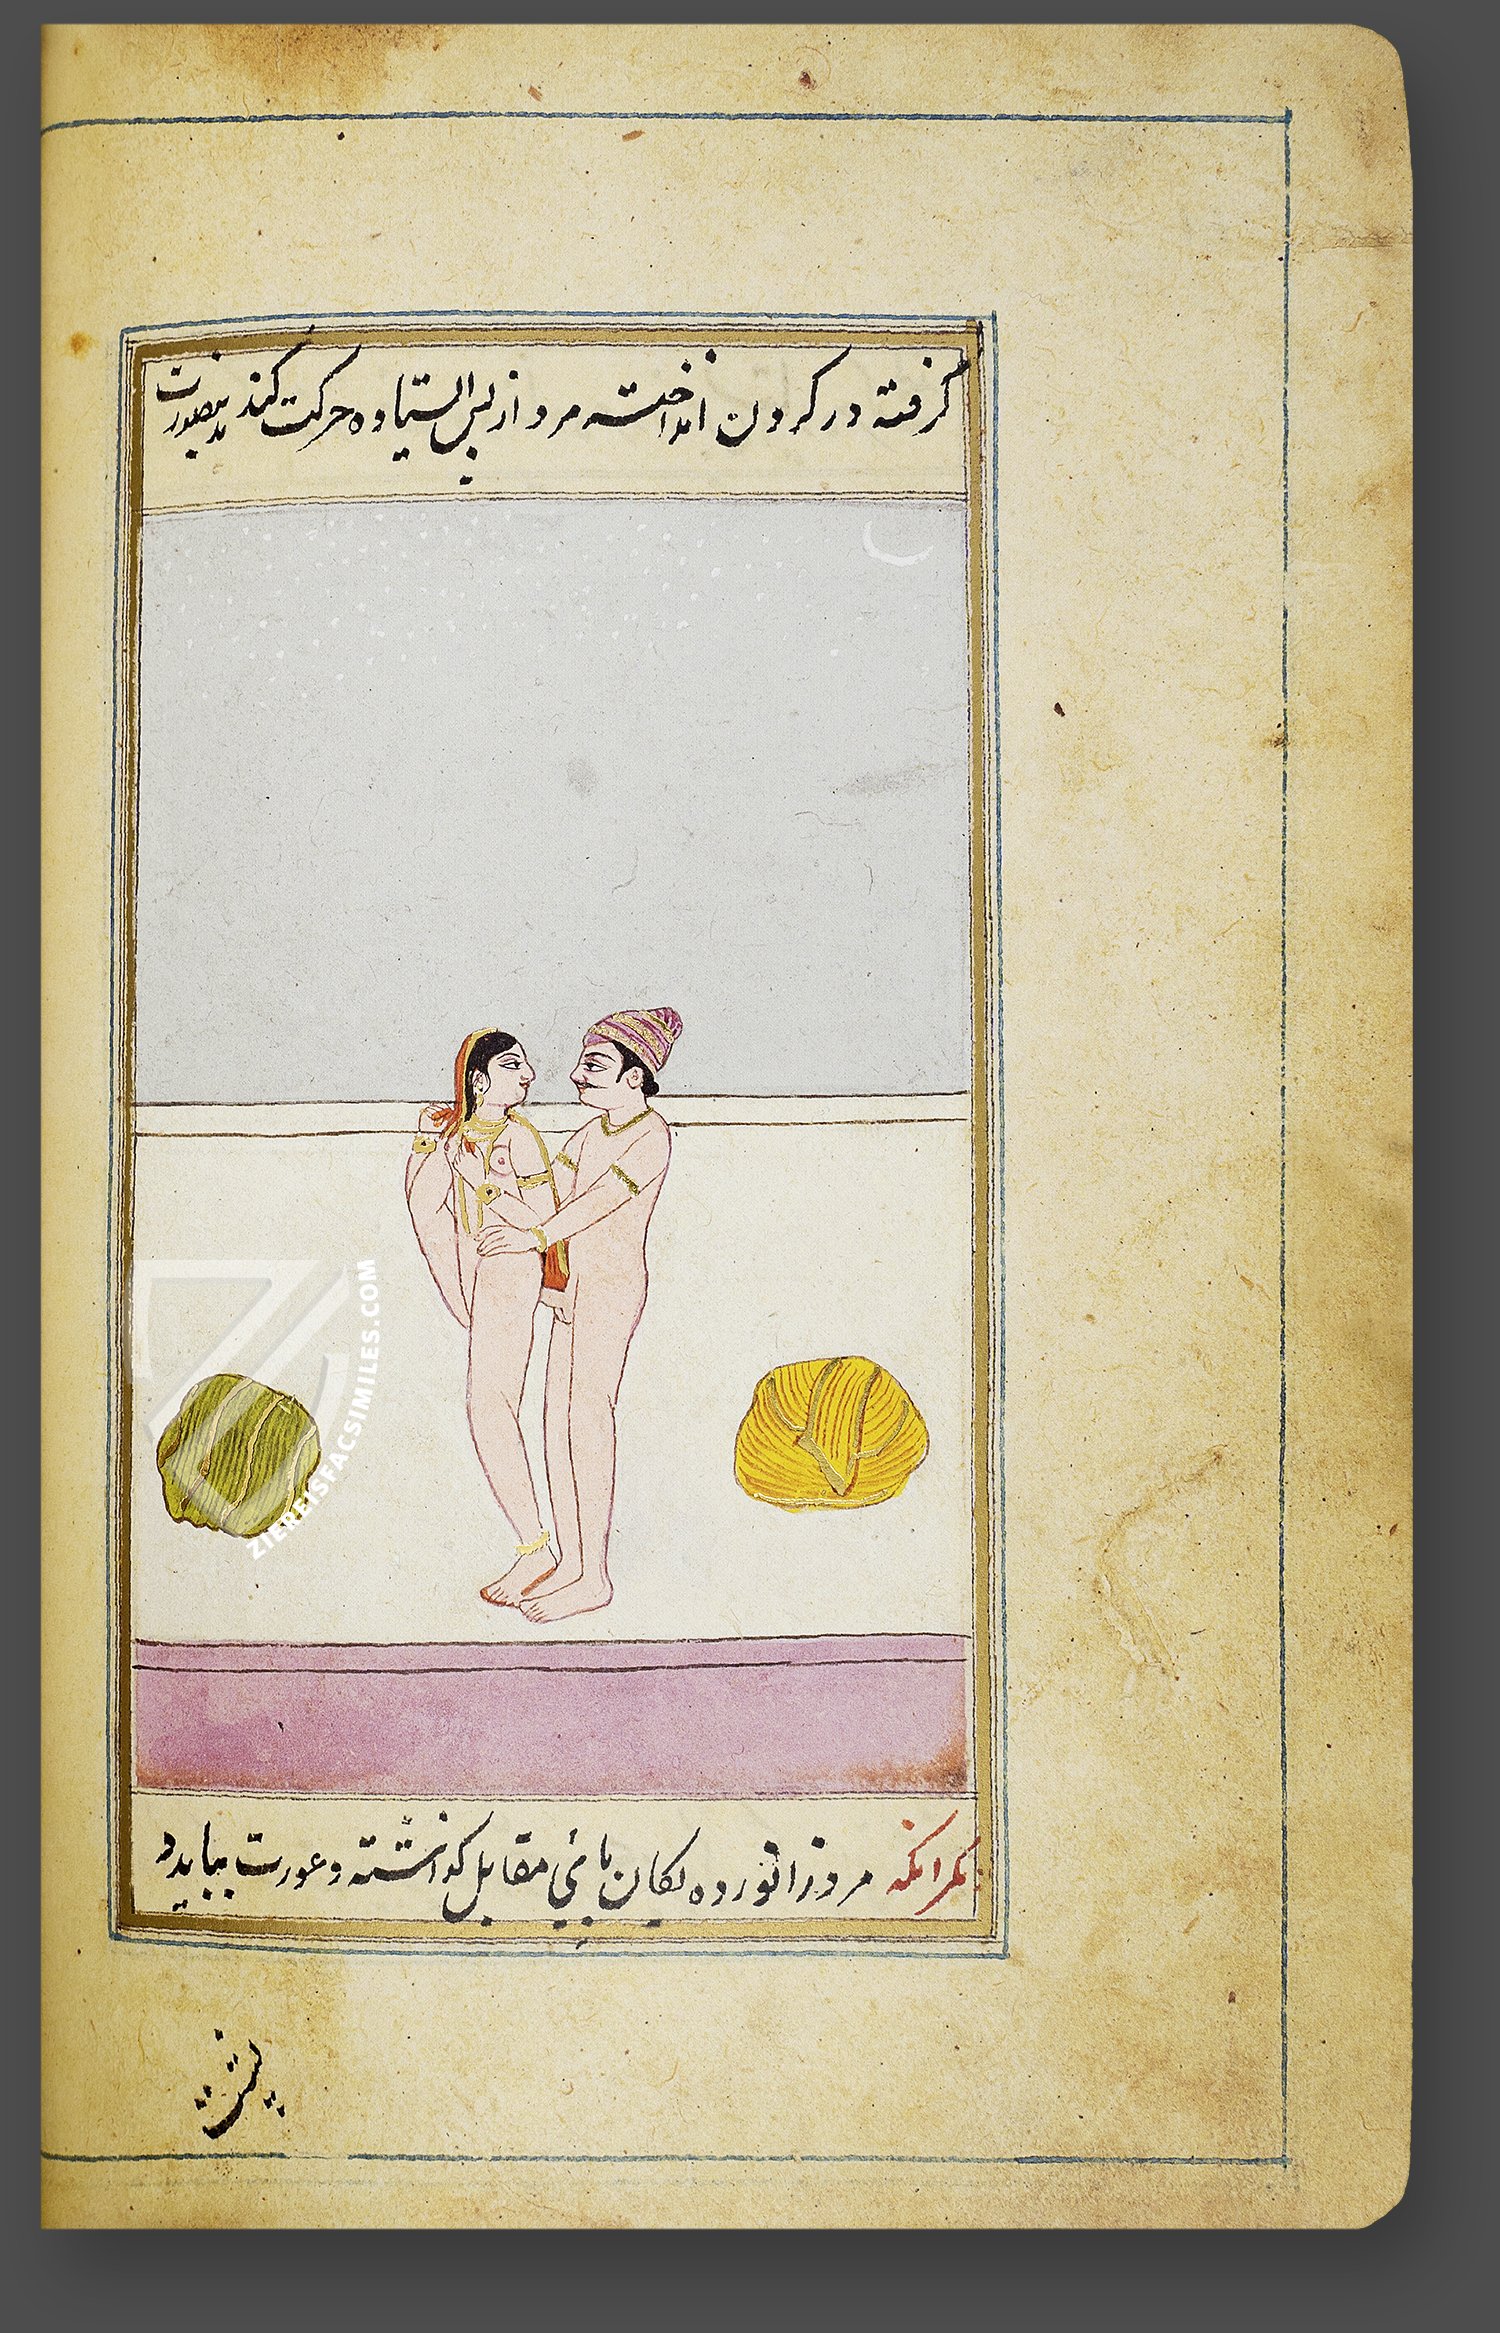 گرفته در کردن انداخته مرد از پس استاده حرکت کند بدینصورت
دیگر آنکه مرد زانو زده یکان پائی مقابل گذاشته و عورت بیاید و
پشت
ZIEREISFACSIMILES.COM